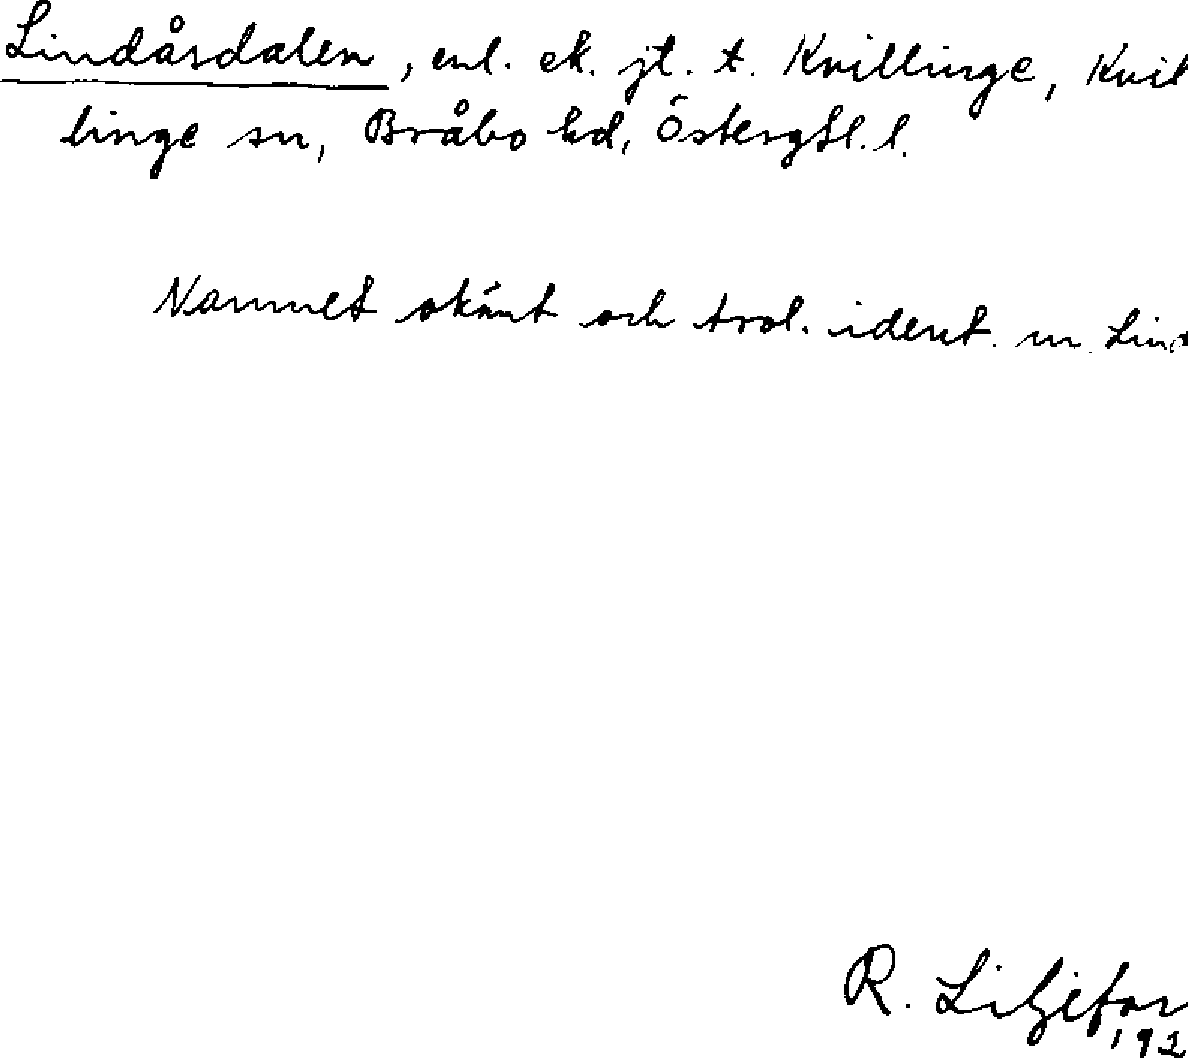 Lindåsdalen, enl. ek. jt. t. Kvillinge, Kvil
linge sn, Bråbo hd, Östergtl. l.
Namnet okänt och trol. ident. m. Lind
R. Liljefor
192